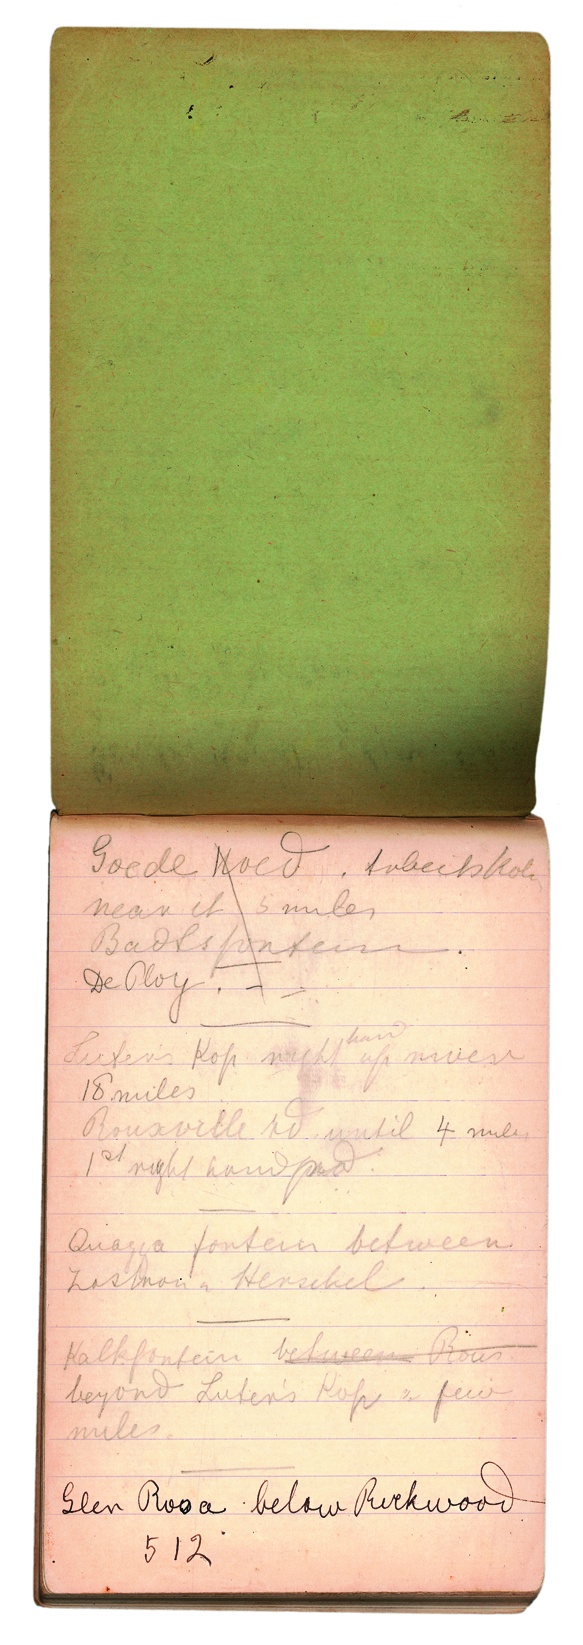 Goede Hoed.
near it 5 miles
Badlsfontein.
De Ploy. - -
Luter's Kop right hand up river
18 miles
Rouxville rd until 4 miles
1st right hand pad.
Quagga fontein between
Zastron & Herschel.
Kalkfontein between Roux
beyond Luter's Kop a few
miles.
Glen Rosa below Rockwood
512